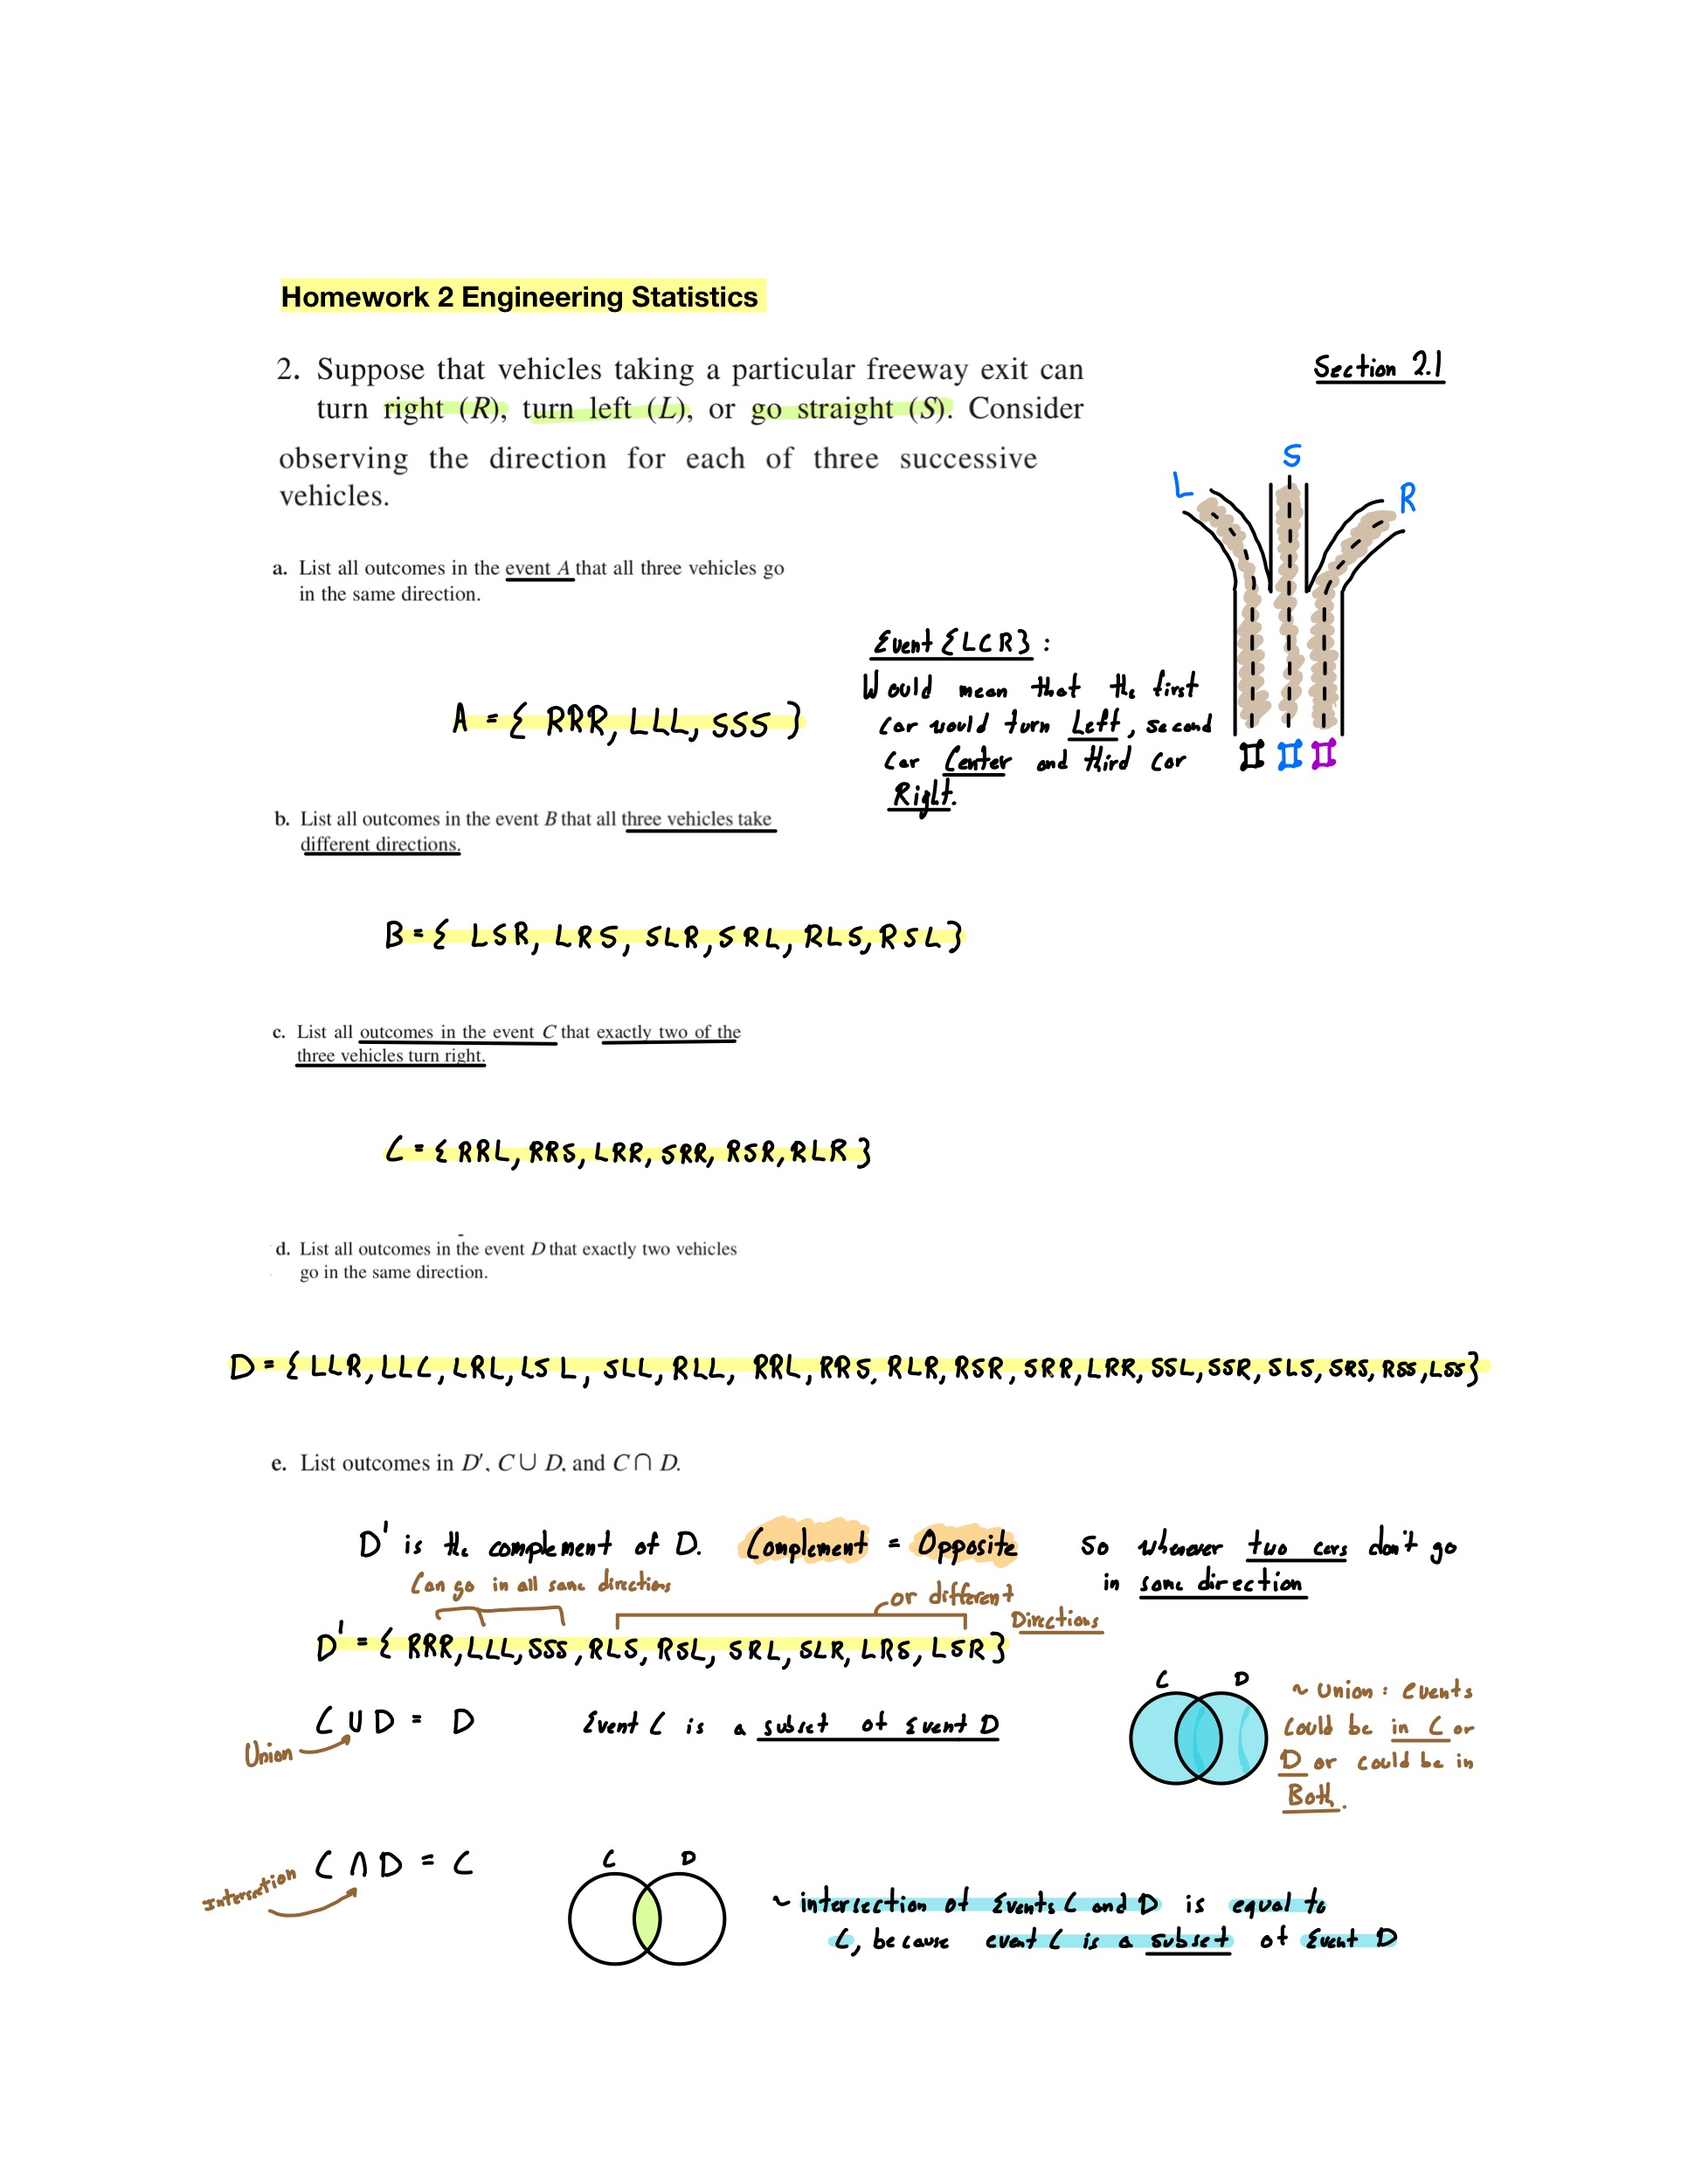 Homework 2 Engineering Statistics
2. Suppose that vehicles taking a particular freeway exit can
turn right (R), turn left (L), or go straight (S). Consider
observing the direction for each of three successive
vehicles.
Section 2.1
L
S
R
a. List all outcomes in the event A that all three vehicles go
in the same direction.
Event {LCR} :
Would mean that the first
car would turn Left, second
car Center and third car
Right.
A = { RRR, LLL, SSS }
b. List all outcomes in the event B that all three vehicles take
different directions.
B = { LSR, LRS, SLR, SRL, RLS, RSL}
c. List all outcomes in the event C that exactly two of the
three vehicles turn right.
C = { RRL, RRS, LRR, SRR, RSR, RLR }
d. List all outcomes in the event D that exactly two vehicles
go in the same direction.
D = { LLR, LLC, LRL, LSL, SLL, RLL, RRL, RRS, RLR, RSR, SRR, LRR, SSL, SSR, SLS, SRS, RSS, LSS}
e. List outcomes in D′, C ∪ D, and C ∩ D.
D' is the complement of D. Complement = Opposite So whenever two cars don't go
in same direction
Can go in all same directions
or different
Directions
D' = { RRR, LLL, SSS, RLS, RSL, SRL, SLR, LRS, LSR}
C ∪ D = D Event C is a subset of Event D
Union
C D
~ Union: Events
could be in C or
D or could be in
Both.
C ∩ D = C
Intersection
C D
~ intersection of Events C and D is equal to
C, because event C is a subset of Event D